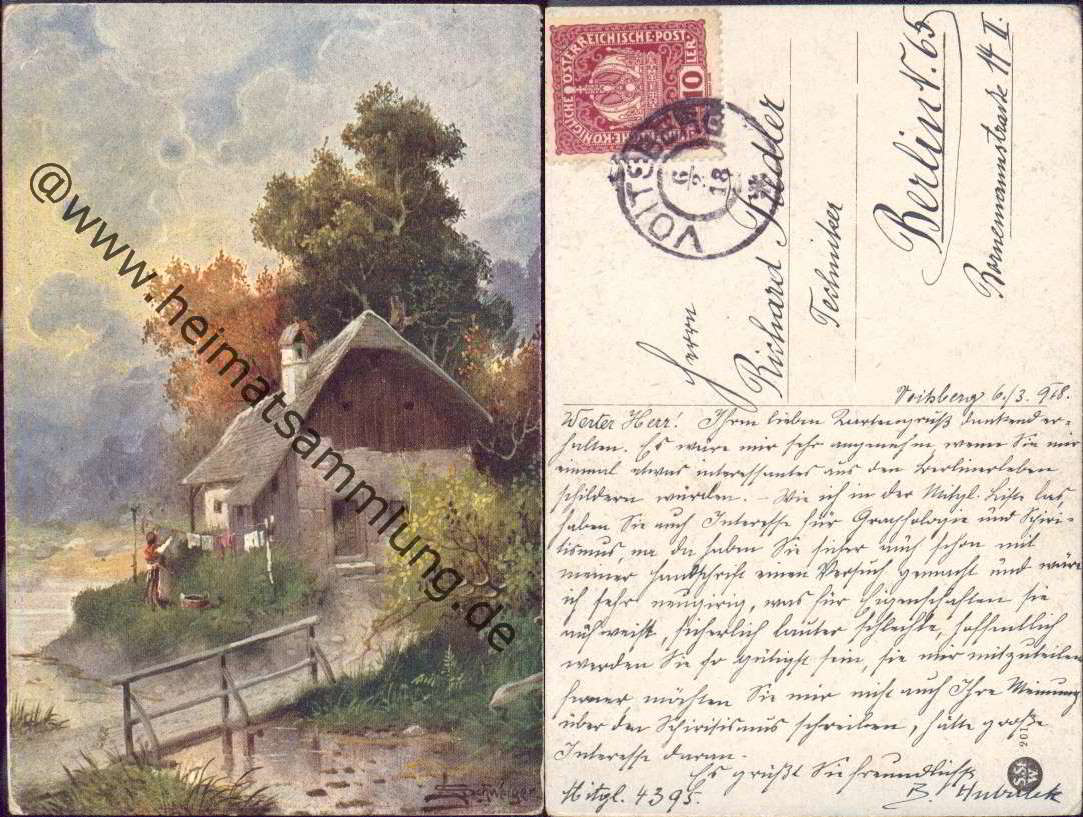 @www.heimatsammlung.de
Schweiger
KAISERLICHE KÖNIGLICHE ÖSTERREICHISCHE POST.
10 HELLER
VOITSBERG
6
3
18
Herrn
Richard Fiedler
Techniker
Berlin N. 65
Bornemannstraße 14 II.
Voitsberg 6./3. 918.
Werter Herr! Ihren lieben Kartengruß dankend er-
halten. Es wäre mir sehr angenehm wenn Sie mir
einmal etwas interessantes aus dem Berlinerleben
schildern würden. – Wie ich in der Mitgl. Liste las,
haben Sie auch Interesse für Graphologie und Spiri-
tismus, na da haben Sie sicher auch schon mit
meiner Handschrift einen Versuch gemacht und wäre
ich sehr neugierig, was für Eigenschaften sie
aufweist, sicherlich lauter schlechte, hoffentlich
werden Sie so gütigst sein, sie mir mitzuteilen
ferner möchten Sie mir nicht auch Ihre Meinung
über den Spiritismus schreiben, hätte große
Interesse daran.
Es grüßt Sie freundlichst
Mitgl. 4395.
B. Hubalek
SSW
201